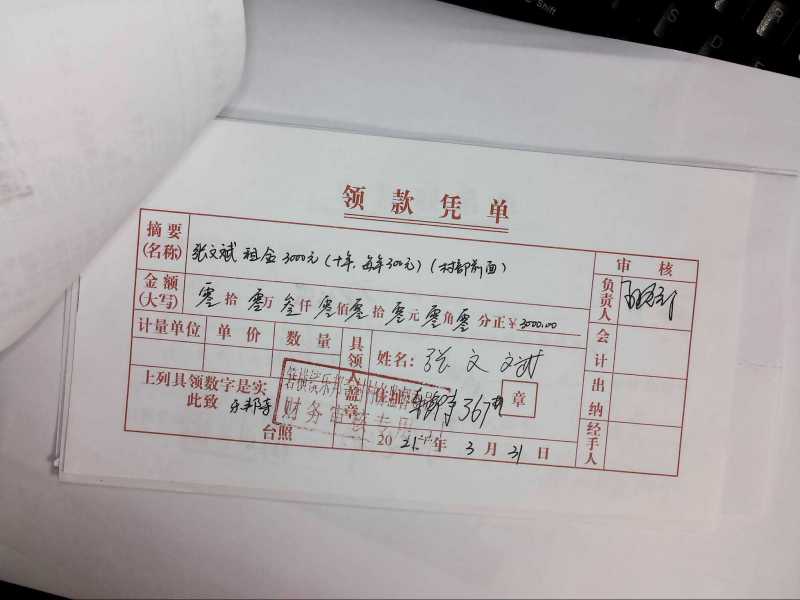 Shift
领款凭单
摘要(名称) 张文斌 租金3000元(十年、每年300元)(村部前面)
审核
金额(大写) 零拾零万叁仟零佰零拾零元零角零分正¥3000.00
负责人
计量单位 单价 数量 具领人盖章 姓名:张文斌
会计
上列具领数字是实 住址 367号 章
此致
出纳
财务审核专用
台照 2021年3月31日
经手人